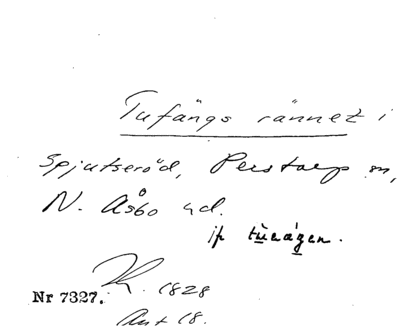 Tufängs rännet i
Spjutseröd, Perstorp sn,
N. Åsbo hd.
jf
Nr 7327. 1828
Ant 18.